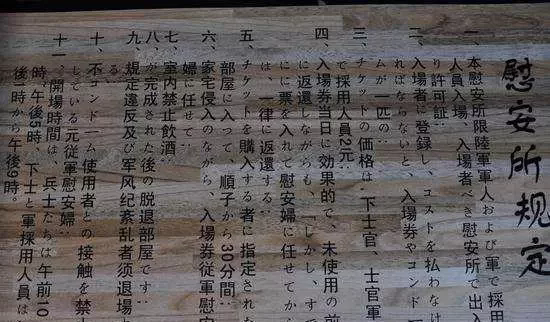 慰安所规定
一、本慰安所限陸軍軍人および軍で採用
人員入場、入場者べき慰安所で出入
り許可証‥
二、入場者に登録し、コストを払わなけ
ればならないと、入場券やコンドー
ムが一匹の‥
三、チケットの価格は‥下士官、士官軍
で採用人員2元‥
四、入場券当日に効果的で、未使用の前
に返還しながらも、しかし、すで
にに票を入れて慰安婦に任せてから
は、一律に返還する‥
五、チケットを購入する者に指定された
部屋に入って、順子から30分間‥
六、家宅侵入のながら、入場券従軍慰安
婦に任せて‥
七、室内禁止飲酒‥
八、が完成された後の脱退部屋です‥
九、規定違反及び军风纪紊乱者须退場
る‥
十、不コンドーム使用者との接触を禁
している元従軍慰安婦‥
十一、開場時間は‥兵士たちは午前10
時、午後5時、下士と軍採用人員は
後一時から午後9時。